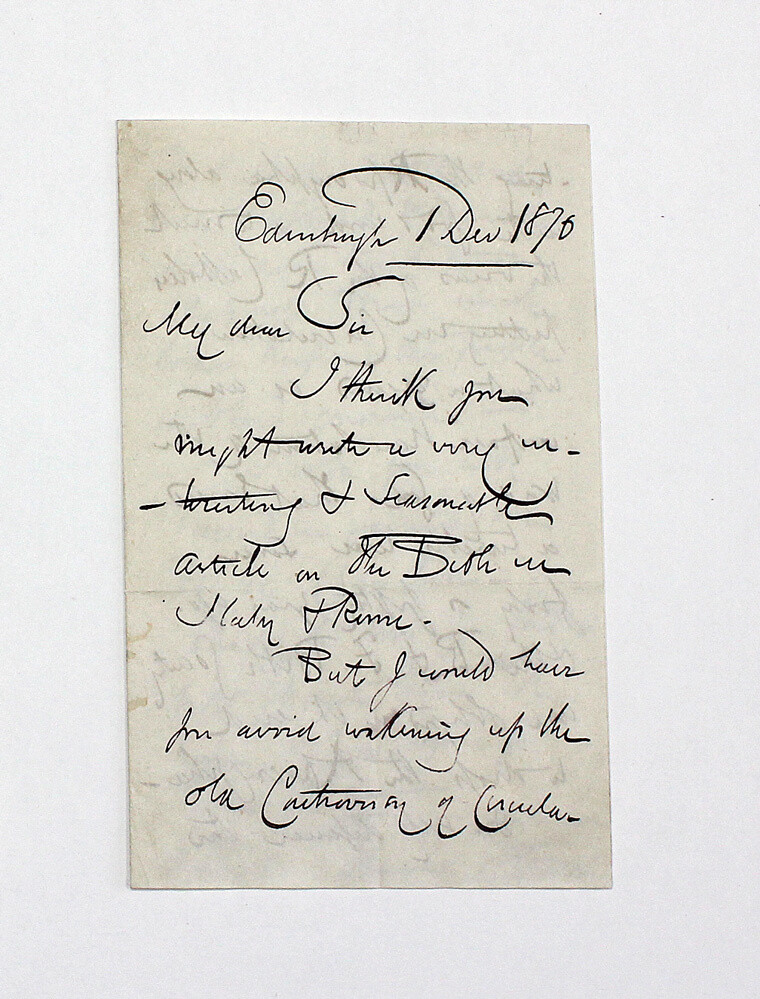 Edinburgh 1 Dec 1870
My dear Sir
I think you
might write a very in-
-teresting & Seasonable
article on the Bible in
Italy & Rome.
But I would have
you avoid wakening up the
old Controversy of Circula-